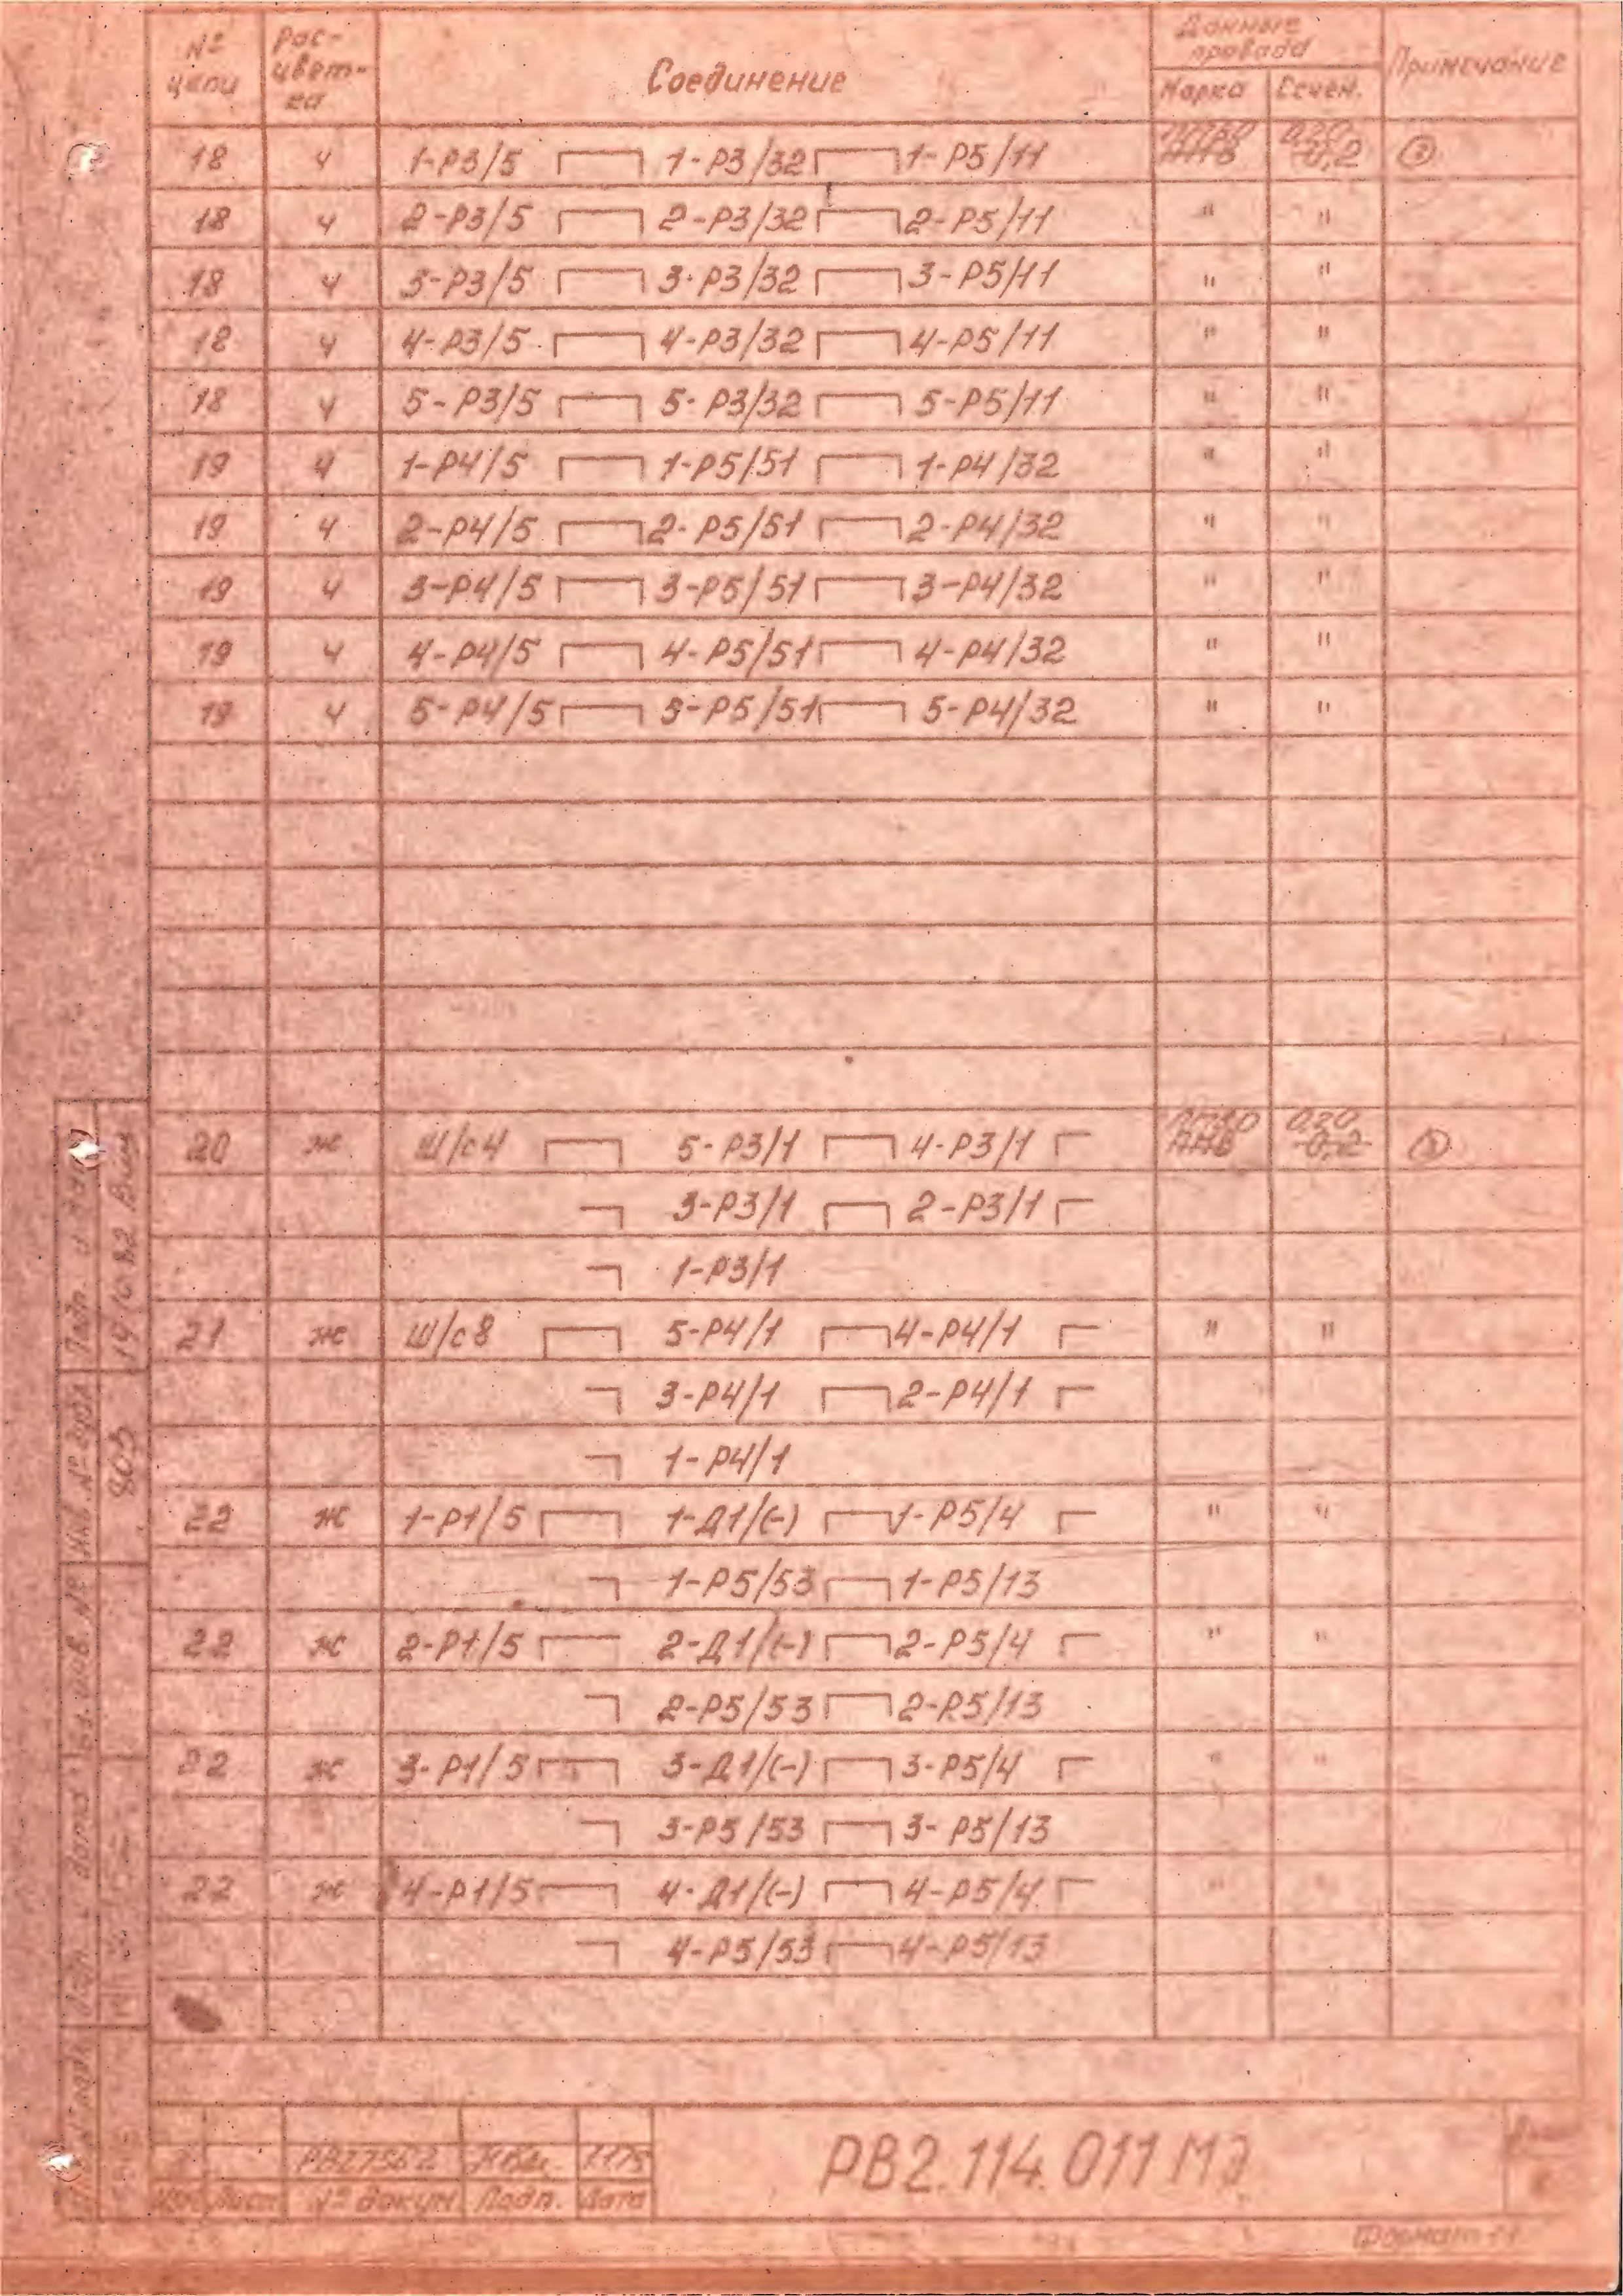 № цепи Рас-цвет-ка Соединение Данные провода Примечание
Марка Сечен.
18 ч 1-Р3/5 1-Р3/32 1-Р5/11 АНВ 0,20 0,2
18 ч 2-Р3/5 2-Р3/32 2-Р5/11 " "
18 ч 3-Р3/5 3-Р3/32 3-Р5/11 " "
18 ч 4-Р3/5 4-Р3/32 4-Р5/11 " "
18 ч 5-Р3/5 5-Р3/32 5-Р5/11 " "
19 ч 1-Р4/5 1-Р5/51 1-Р4/32 " "
19 ч 2-Р4/5 2-Р5/51 2-Р4/32 " "
19 ч 3-Р4/5 3-Р5/51 3-Р4/32 " "
19 ч 4-Р4/5 4-Р5/51 4-Р4/32 " "
19 ч 5-Р4/5 5-Р5/51 5-Р4/32 " "
20 ж Ш/с4 5-Р3/1 4-Р3/1 АНВ 0,20 0,2
3-Р3/1 2-Р3/1
1-Р3/1
21 ж Ш/с8 5-Р4/1 4-Р4/1 " "
3-Р4/1 2-Р4/1
1-Р4/1
22 ж 1-Р1/5 1-Д1/(-) 1-Р5/4 " "
1-Р5/53 1-Р5/13
22 ж 2-Р1/5 2-Д1/(-) 2-Р5/4 " "
2-Р5/53 2-Р5/13
22 ж 3-Р1/5 3-Д1/(-) 3-Р5/4 " "
3-Р5/53 3-Р5/13
22 ж 4-Р1/5 4-Д1/(-) 4-Р5/4 " "
4-Р5/53 4-Р5/13
Подп. и дата
Инв. № дубл.
805
Вз. инв. №
Подп. и дата
РВ2.114.011 МЭ
Изм Лист № докум Подп. Дата
Формат 11